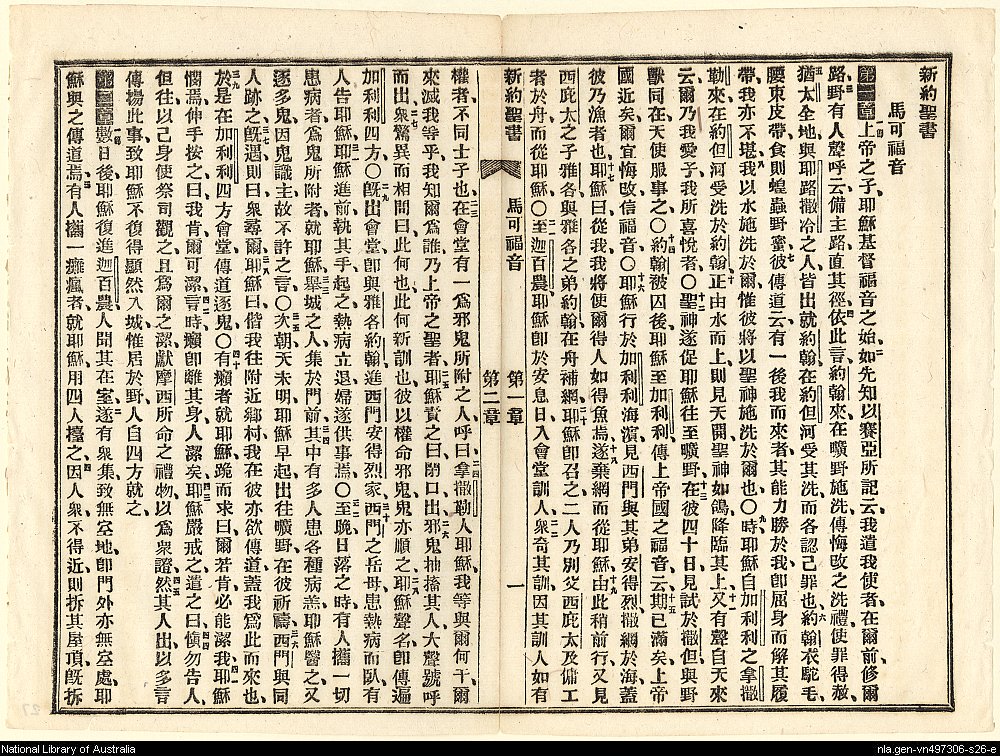 新約聖書
馬可福音
第一章一節上帝之子耶穌基督福音之始、二如先知以賽亞所記云我遣我使者在爾前修爾
路、三野有人聲呼云備主路直其徑、四依此言約翰來在曠野施洗傳悔改之洗禮使罪得赦、
五猶太全地與耶路撒冷之人皆出就約翰在約但河受其洗而各認己罪也、六約翰衣駝毛
腰束皮帶、食則蝗蟲野蜜、七彼傳道云有一後我而來者其能力勝於我卽屈身而解其履
帶我亦不堪、八我以水施洗於爾惟彼將以聖神施洗於爾也○九時耶穌自加利利之拿撒
勒來在約但河受洗於約翰、十正由水而上、則見天開聖神如鴿降臨其上、十一又有聲自天來
云爾乃我愛子我所喜悅者○十二聖神遂促耶穌往至曠野、十三在彼四十日見試於撒但與野
獸同在天使服事之○十四約翰被囚後耶穌至加利利傳上帝國之福音、十五云期已滿矣上帝
國近矣爾宜悔改信福音○十六耶穌行於加利利海濱見西門與其弟安得烈撒網於海蓋
彼乃漁者也、十七耶穌曰從我我將使爾得人如得魚焉、十八遂棄網而從耶穌、十九由此稍前行又見
西庇太之子雅各與雅各之弟約翰在舟補網、二十耶穌卽召之、二人乃別父西庇太及傭工
者於舟而從耶穌○二一至迦百農耶穌卽於安息日入會堂訓人、二二衆奇其訓因其訓人如有
新約聖書 馬可福音 第一章 第二章 一
權者不同士子也、二三在會堂有一爲邪鬼所附之人、呼曰、二四拿撒勒人耶穌我等與爾何干爾
來滅我等乎我知爾爲誰乃上帝之聖者、二五耶穌責之曰閉口出、二六邪鬼抽搐其人、大聲號呼
而出、二七衆驚異而相問曰此何也此何新訓也彼以權命邪鬼鬼亦順之、二八耶穌聲名卽傳遍
加利利四方○二九旣出會堂卽與雅各約翰進西門安得烈家、三十西門之岳母患熱病而臥有
人告耶穌、三一耶穌進前執其手起之、熱病立退、婦遂供事焉○三二至晚日落之時、有人攜一切
患病者、爲鬼所附者就耶穌、三三舉城之人集於門前、三四其中有多人患各種病恙、耶穌醫之、又
逐多鬼、因鬼識主故不許之言○三五次朝天未明耶穌早起出往曠野在彼祈禱、三六西門與同
人跡之、三七旣遇則曰衆尋爾、三八耶穌曰偕我往附近鄉村、我在彼亦欲傳道蓋我爲此而來也、
三九於是在加利利四方會堂傳道逐鬼○四十有癩者就耶穌跪而求曰爾若肯必能潔我、四一耶穌
憫焉、伸手按之曰、我肯爾可潔、四二言時、癩卽離其身、人潔矣、四三耶穌嚴戒之、遣之曰、四四愼勿告人、
但往、以己身使祭司觀之、且爲爾之潔獻摩西所命之禮物以爲衆證、四五然其人出、以多言
傳揚此事致耶穌不復得顯然入城惟居於野、人自四方就之、
第二章一節數日後、耶穌復進迦百農、人聞其在室、二遂有衆集致無室地、卽門外亦無室處、耶
穌與之傳道焉、三有人攜一癱瘋者就耶穌、用四人擡之、四因人衆不得近、則拆其屋頂、旣拆
National Library of Australia
nla.gen-vn497306-s26-e